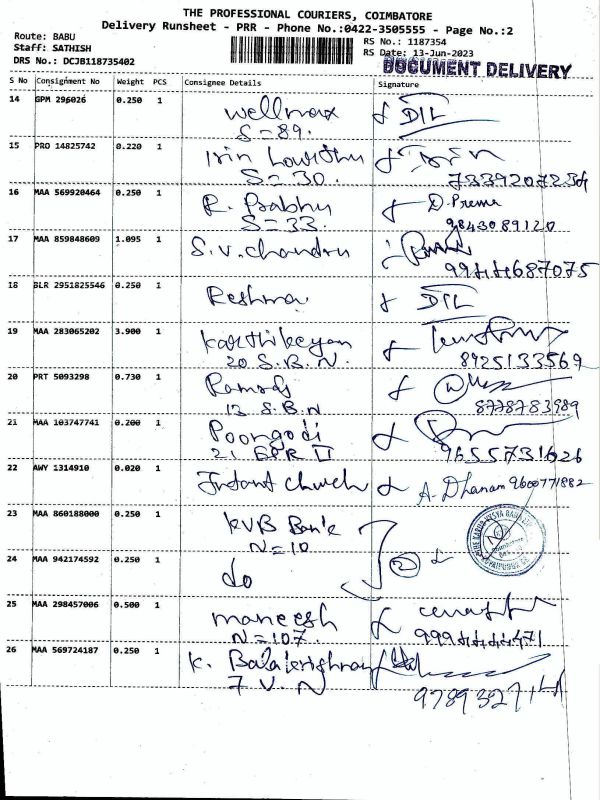 THE PROFESSIONAL COURIERS, COIMBATORE
Delivery Runsheet - PRR - Phone No.:0422-3505555 - Page No.:2
Route: BABU
Staff: SATHISH
DRS No.: DCJB118735402
RS No.: 1187354
RS Date: 13-Jun-2023
DOCUMENT DELIVERY
S No Consignment No Weight PCS Consignee Details Signature
14 GPM 296026 0.250 1 Wellmax DIL
S=89.
15 PRO 14825742 0.220 1 Irin
S=30. 7339207234
16 MAA 569920464 0.250 1 R. Prabhu D. Prema
S=33. 9843089120
17 MAA 859848609 1.095 1 S.V. Chandru
9944687075
18 BLR 2951825546 0.250 1 Reshma DIL
19 MAA 283065202 3.900 1 Karthikeyan
20 S.B.N. 8925133569
20 PRT 5093298 0.730 1
13 S.B.N 8778783989
21 MAA 103747741 0.200 1 Poongodi
21 GPR II 9655731626
22 AWY 1314910 0.020 1 Church A. Dhanam 9600771882
23 MAA 860188000 0.250 1 KVB Bank
N=10
24 MAA 942174592 0.250 1 do
25 MAA 298457006 0.500 1 maneesh
N=107. 9994444471
26 MAA 569724187 0.250 1 K. Balakrishnan
7 V.N